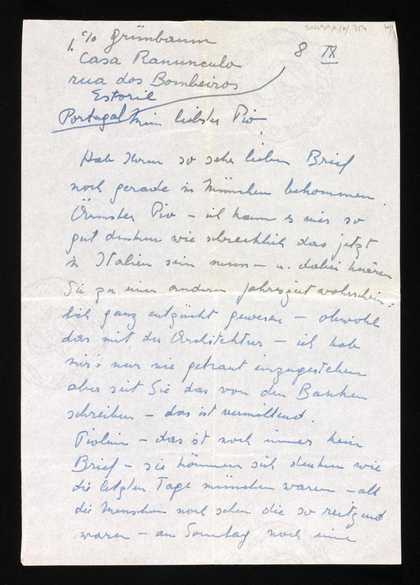 c/o Grünbaum
Casa Ranunculo
rua dos Bombeiros
Estoril
Portugal
8 IX
Mein liebster Pio
Hab Ihren so sehr lieben Brief
noch gerade in München bekommen.
Ärmster Pio – ich kann es mir so
gut denken wie schrecklich das jetzt
in Italien sein muss – u. dabei wären
Sie zu einer andern Jahreszeit wahrschein-
lich ganz entzückt gewesen – obwohl
das mit der Architektur – ich hab
mir's nur nie getraut einzugestehen
aber seit Sie das von den Banken
schreiben – das ist vernichtend.
Piolein – das ist noch immer kein
Brief – sie können sich denken wie
die letzten Tage München waren – all
die Menschen noch sehen die so reizend
waren – am Sonntag noch eine